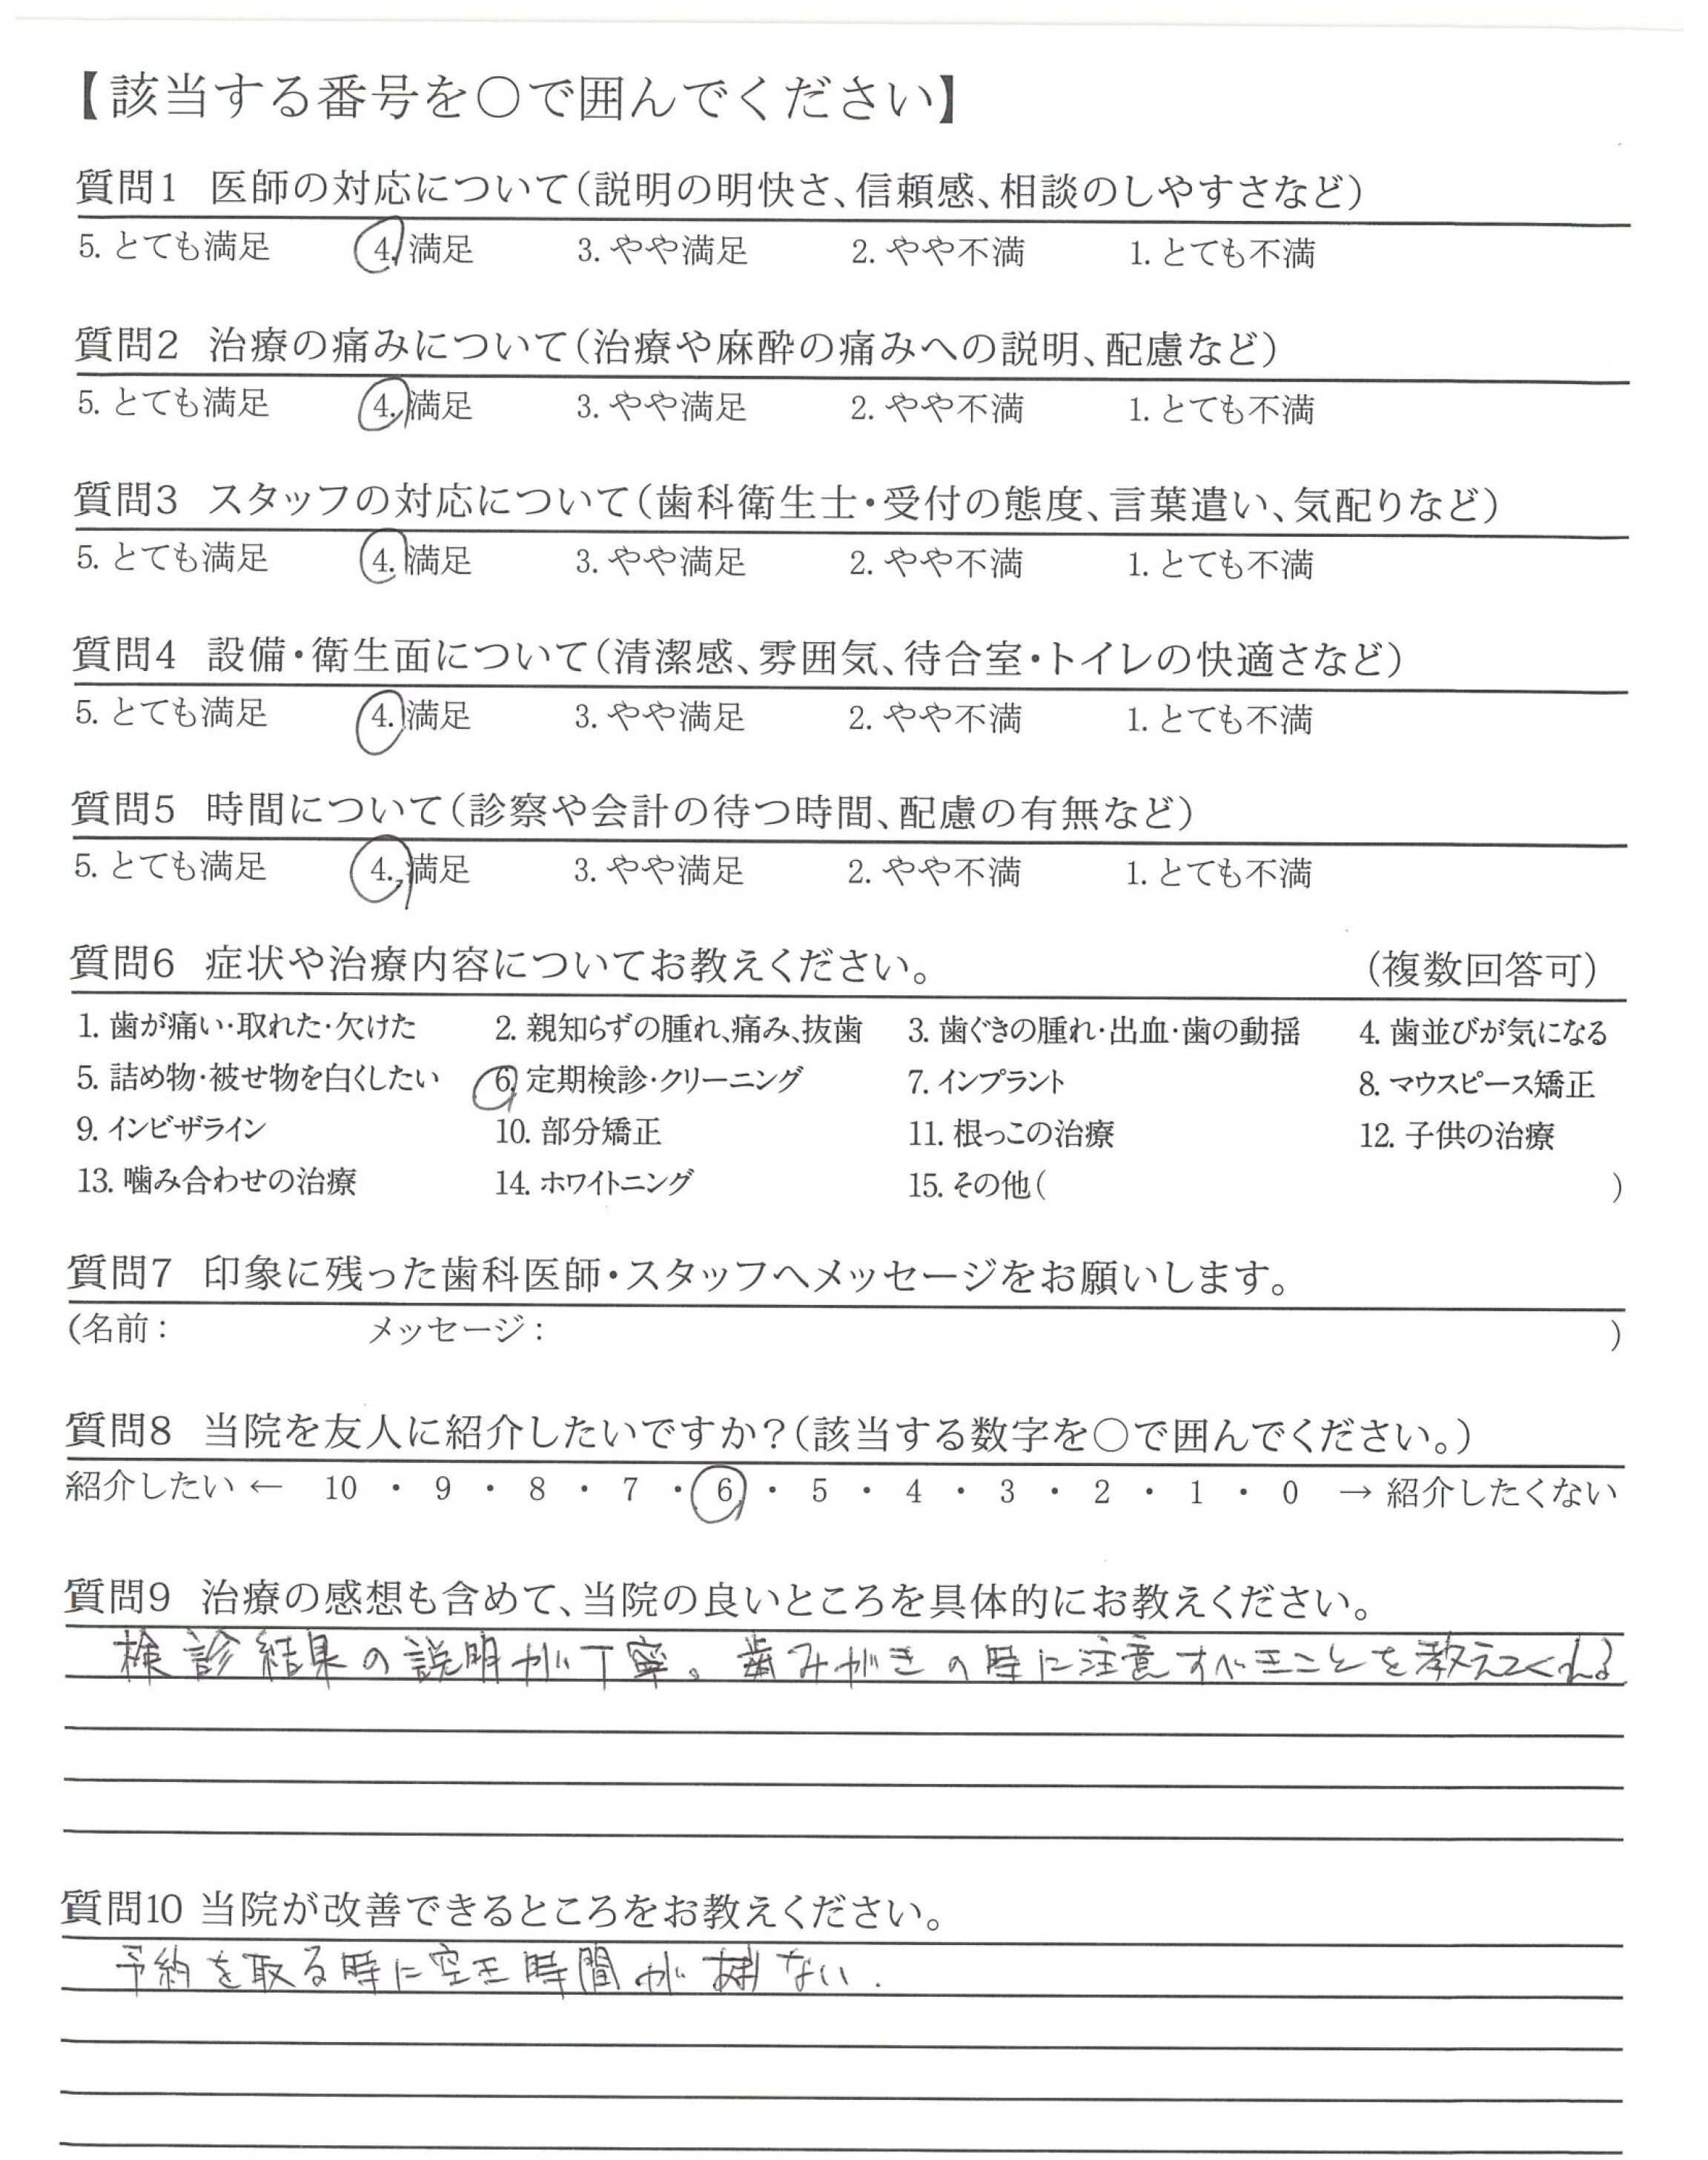 【該当する番号を〇で囲んでください】
質問1 医師の対応について(説明の明快さ、信頼感、相談のしやすさなど)
5. とても満足 4. 満足 3. やや満足 2. やや不満 1. とても不満
質問2 治療の痛みについて(治療や麻酔の痛みへの説明、配慮など)
5. とても満足 4. 満足 3. やや満足 2. やや不満 1. とても不満
質問3 スタッフの対応について(歯科衛生士・受付の態度、言葉遣い、気配りなど)
5. とても満足 4. 満足 3. やや満足 2. やや不満 1. とても不満
質問4 設備・衛生面について(清潔感、雰囲気、待合室・トイレの快適さなど)
5. とても満足 4. 満足 3. やや満足 2. やや不満 1. とても不満
質問5 時間について(診察や会計の待つ時間、配慮の有無など)
5. とても満足 4. 満足 3. やや満足 2. やや不満 1. とても不満
質問6 症状や治療内容についてお教えください。 (複数回答可)
1. 歯が痛い・取れた・欠けた 2. 親知らずの腫れ、痛み、抜歯 3. 歯ぐきの腫れ・出血・歯の動揺 4. 歯並びが気になる
5. 詰め物・被せ物を白くしたい 6. 定期検診・クリーニング 7. インプラント 8. マウスピース矯正
9. インビザライン 10. 部分矯正 11. 根っこの治療 12. 子供の治療
13. 噛み合わせの治療 14. ホワイトニング 15. その他( )
質問7 印象に残った歯科医師・スタッフへメッセージをお願いします。
(名前: メッセージ: )
質問8 当院を友人に紹介したいですか?(該当する数字を〇で囲んでください。)
紹介したい ← 10 ・ 9 ・ 8 ・ 7 ・ 6 ・ 5 ・ 4 ・ 3 ・ 2 ・ 1 ・ 0 → 紹介したくない
質問9 治療の感想も含めて、当院の良いところを具体的にお教えください。
検診結果の説明が丁寧。歯みがきの時に注意すべきことを教えてくれる
質問10 当院が改善できるところをお教えください。
予約を取る時に空き時間が ない.